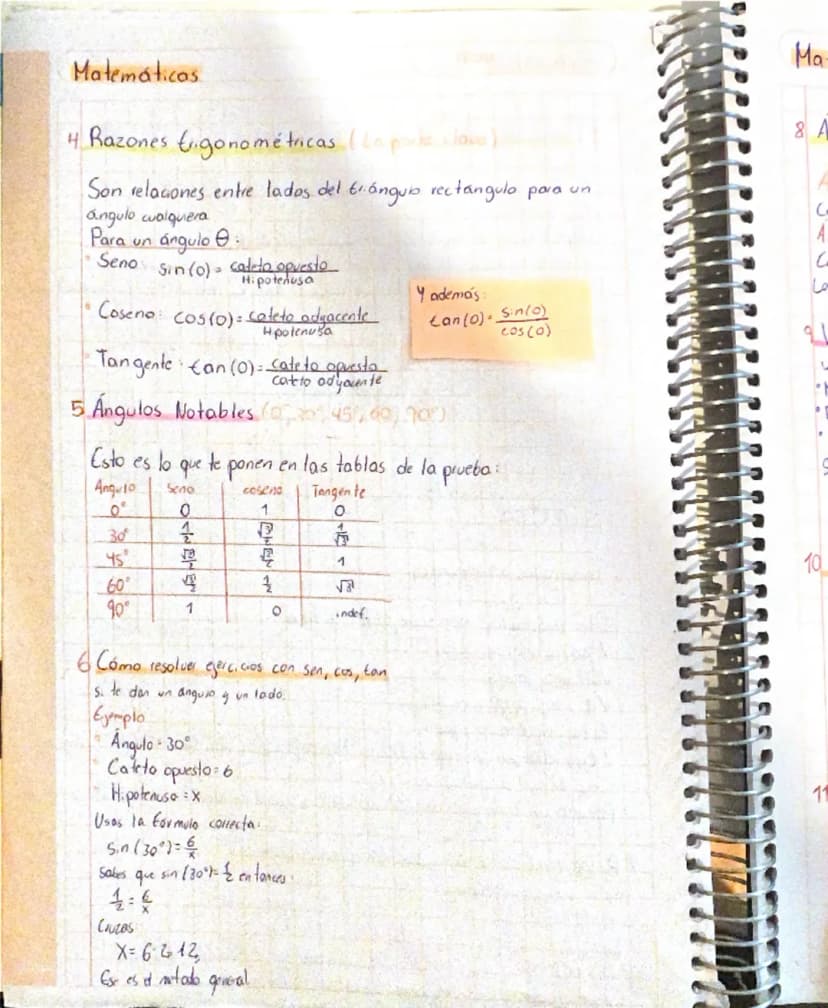 Matemáticas
4 Razones trigonométricas (La parte clave)
Son relaciones entre lados del triángulo rectángulo para un
ángulo cualquiera
Para un ángulo θ:
Seno: sin(0) = cateto opuesto / Hipotenusa
Coseno: cos(0) = cateto adyacente / Hipotenusa
Tangente: tan(0) = cateto opuesto / cateto adyacente
Y además:
tan(0) = sin(0) / cos(0)
5 Ángulos Notables (0°, 30°, 45°, 60, 90°)
Esto es lo que te ponen en las tablas de la prueba:
Ángulo Seno coseno Tangente
0° 0 1 0
30° 1/2 √3/2 1/√3
45° √2/2 √2/2 1
60° √3/2 1/2 √3
90° 1 0 indef.
6 Cómo resolver ejercicios con sen, cos, tan
si te dan un ángulo y un lado.
Ejemplo
Ángulo = 30°
Cateto opuesto = 6
Hipotenusa = x
Usas la fórmula correcta:
sin(30°) = 6/x
Sabes que sin(30°) = 1/2 entonces:
1/2 = 6/x
Cruzas
X = 6·2 12
Ese es el método general
Ma
8 A
9
10
11